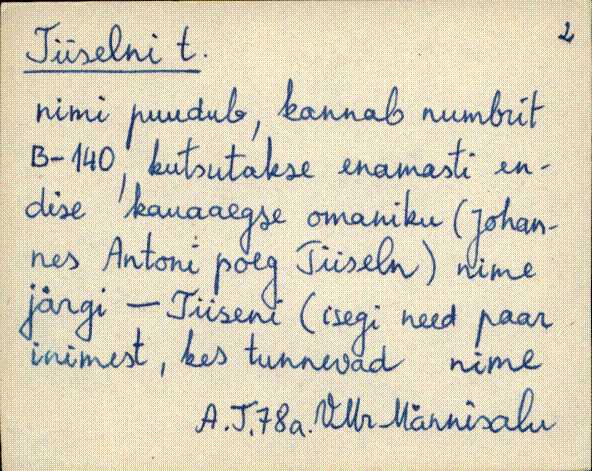 2
Tiiselni t.
nimi puudub, kannab numbrit
B-140, kutsutakse enamasti en-
dise kauaaegse omaniku (Johan-
nes Antoni poeg Tiiseln) nime
järgi — Tiiseni (isegi need paar
inimest, kes tunnevad nime
A.T. 78a. VMr Männisalu